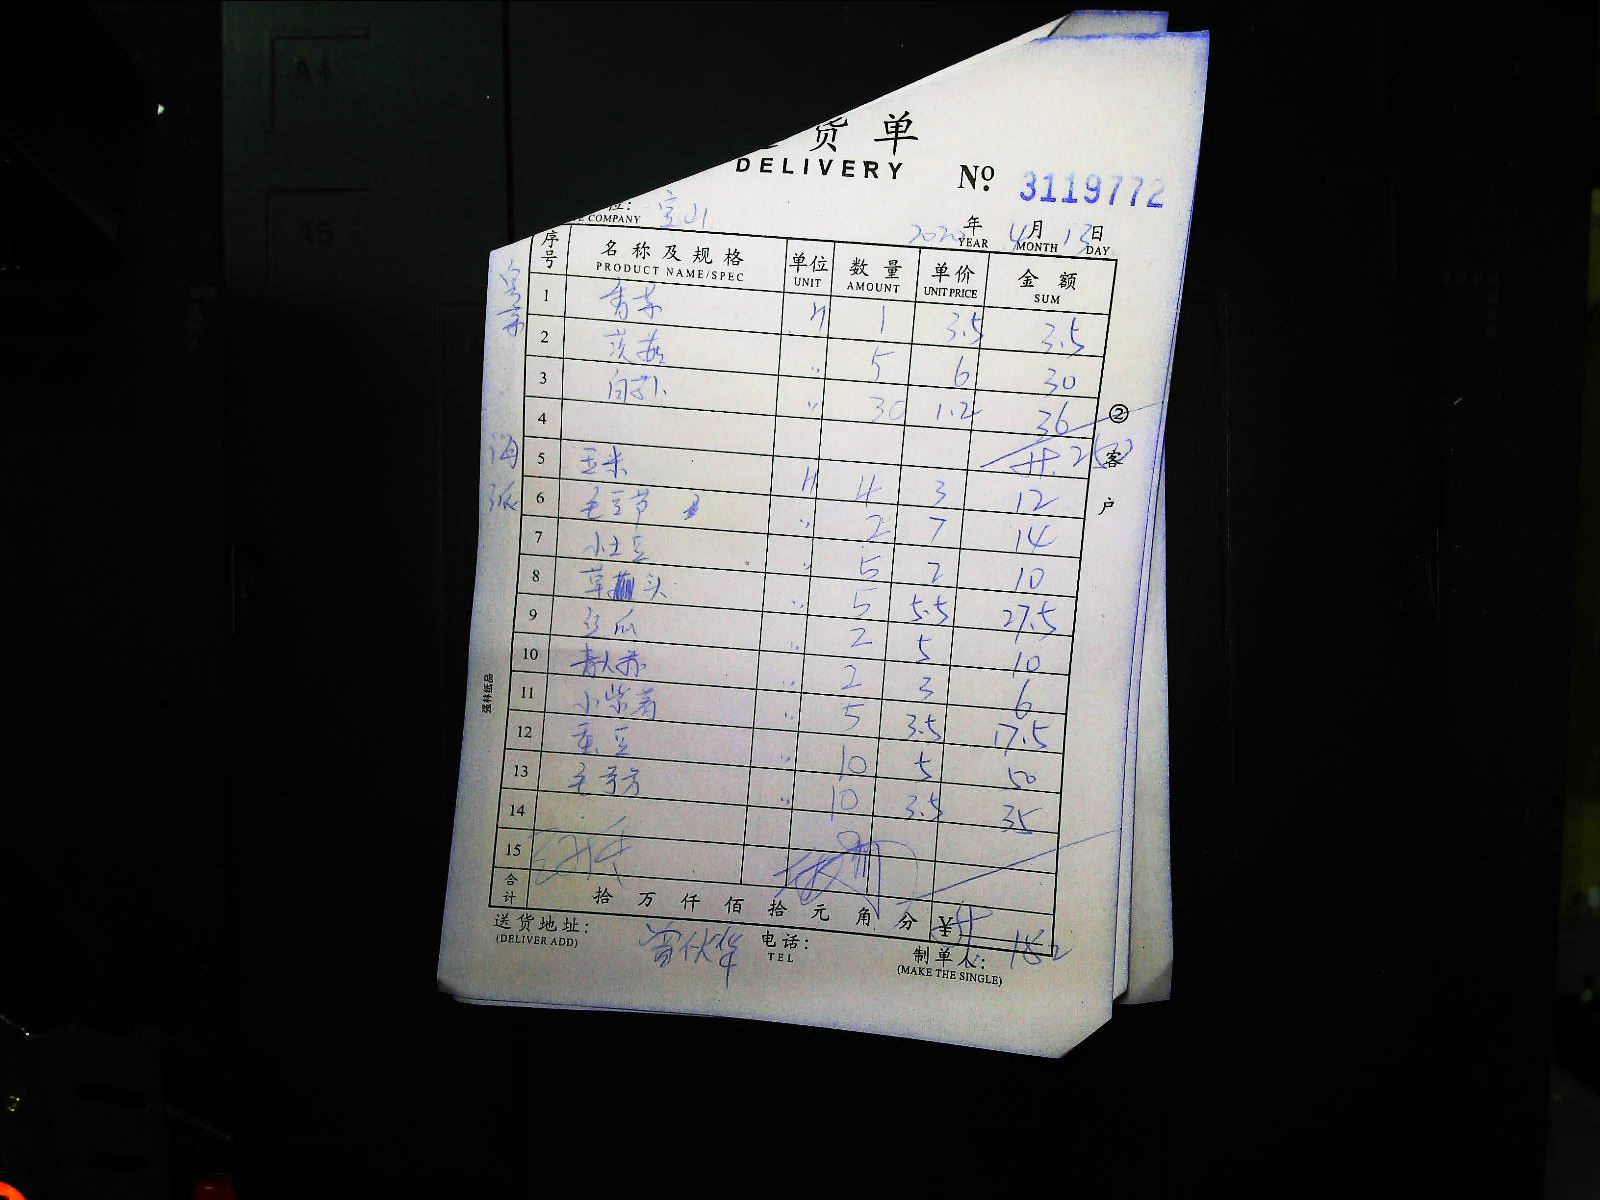 货单
DELIVERY No. 3119772
位: 宝山
COMPANY
年 4月 13日
YEAR MONTH DAY
序号 名称及规格 单位 数量 单价 金额
PRODUCT NAME/SPEC UNIT AMOUNT UNIT PRICE SUM
1 1 3.5 3.5
2 茨菇 〃 5 6 30
3 〃 30 1.2 36
4
海
5 玉米 4 3 12
6 毛豆节 〃 2 7 14
7 小土豆 〃 5 2 10
8 草头 〃 5 5.5 27.5
9 丝瓜 〃 2 5 10
10 〃 2 3 6
11 小紫薯 〃 5 3.5 17.5
12 蚕豆 〃 10 5 50
13 〃 10 3.5 35
14
15
合计 拾 万 仟 佰 拾 元 角 分 ¥ 182
送货地址: 电话: 制单人:
(DELIVER ADD) TEL (MAKE THE SINGLE)
② 客户
强林纸品
A4
A5